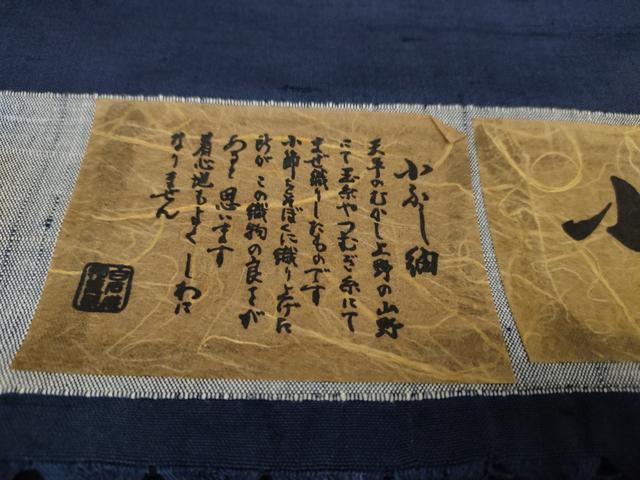 小ふし紬
天平のむかし上野の山野
にて玉糸やつむぎ糸にて
まぜ織りしたものです
小節をそぼくに織り上げた
所が この織物の良さが
あると 思います
着心地もよく しわに
なりません